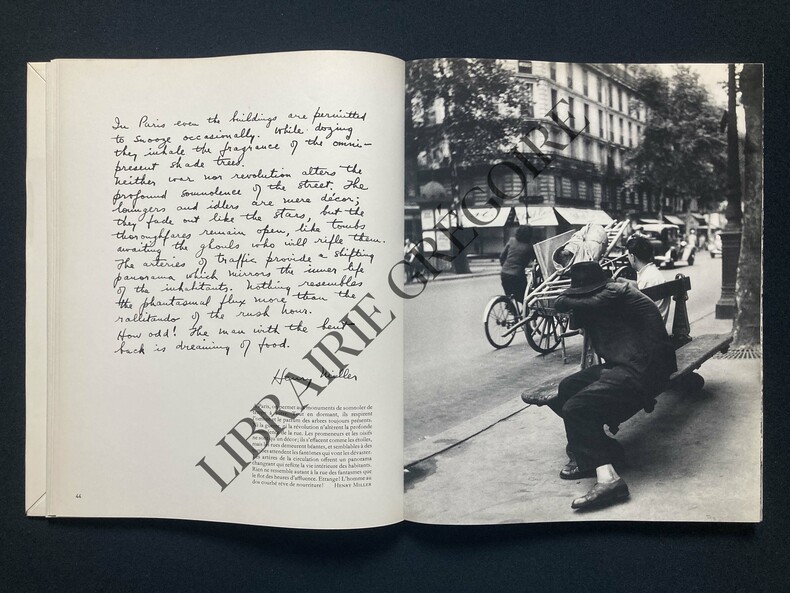 In Paris even the buildings are permitted
to snooze occasionally. While dozing
they inhale the fragrance of the omni-
present shade trees.
Neither war nor revolution alters the
profound somnolence of the street. The
loungers and idlers are mere décor;
they fade out like the stars, but the
thoroughfares remain open, like tombs
awaiting the ghouls who will rifle them.
The arteries of traffic provide a shifting
panorama which mirrors the inner life
of the inhabitants. Nothing resembles
the phantasmal flux more than the
rallitando of the rush hour.
How odd! The man with the bent
back is dreaming of food.
Henry Miller
on permet aux monuments de somnoler de
en dormant, ils respirent
le parfum des arbres toujours présents.
la révolution n'altèrent la profonde
de la rue. Les promeneurs et les oisifs
décor; ils s'effacent comme les étoiles,
rues demeurent béantes, et semblables à des
attendent les fantômes qui vont les dévaster.
artères de la circulation offrent un panorama
changeant qui reflète la vie intérieure des habitants.
Rien ne ressemble autant à la rue des fantasmes que
le flot des heures d'affluence. Etrange! L'homme au
dos courbé rêve de nourriture! HENRY MILLER
44
LIBRAIRIE GRÉGOIRE